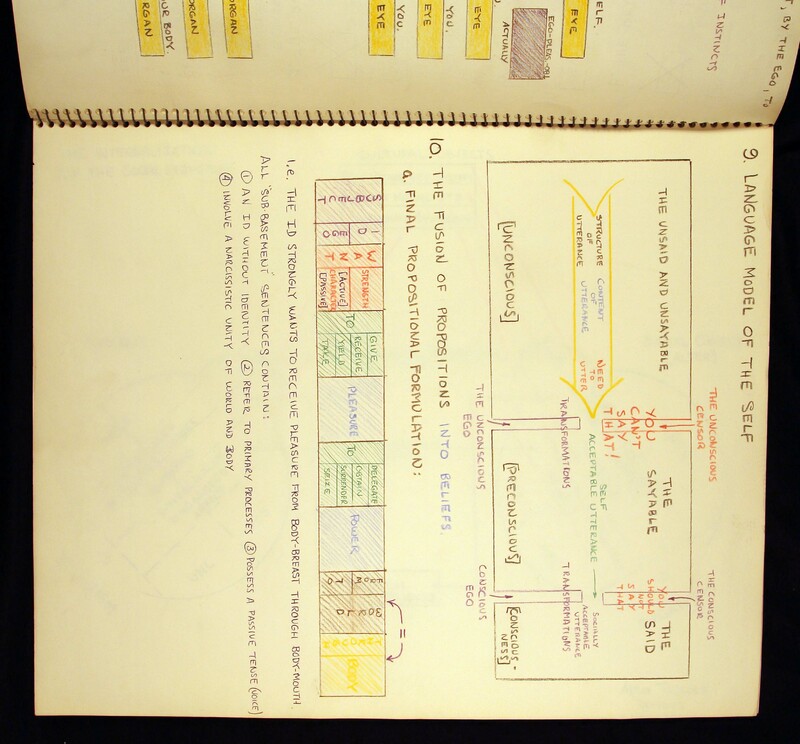 T, BY THE EGO, TO
= INSTINCTS
ELF.
EYE
EGO-PLEAS.-OBJ.
ACTUALLY
EYE
YOU.
EYE
YOU.
EYE
ORGAN
ORGAN
UR BODY.
ORGAN
9. LANGUAGE MODEL OF THE SELF
THE UNCONSCIOUS
CENSOR
THE CONSCIOUS
CENSOR
THE UNSAID AND UNSAYABLE
THE
SAYABLE
THE
SAID
YOU
CAN'T
SAY
THAT!
YOU
SHOULD
NOT
SAY
THAT
STRUCTURE
OF
UTTERANCE
CONTENT
OF
UTTERANCE
NEED
TO
UTTER
SELF
ACCEPTABLE UTTERANCE
SOCIALLY
ACCEPTABLE
UTTERANCE
TRANSFORMATIONS
TRANSFORMATIONS
[UNCONSCIOUS]
[PRECONSCIOUS]
[CONSCIOUS-
NESS]
THE UNCONSCIOUS
EGO
CONSCIOUS
EGO
10. THE FUSION OF PROPOSITIONS INTO BELIEFS.
a. FINAL PROPOSITIONAL FORMULATION:
=
SUBJECT
ID
EGO
WANT
STRENGTH
[ACTIVE]
CHARACTER
[PASSIVE]
TO
GIVE
RECEIVE
YIELD
TAKE
PLEASURE
TO
DELEGATE
OBTAIN
SURRENDER
SEIZE
POWER
FROM
TO
WORLD
BODY
i.e. THE ID STRONGLY WANTS TO RECEIVE PLEASURE FROM BODY-BREAST THROUGH BODY-MOUTH.
ALL "SUB-BASEMENT" SENTENCES CONTAIN:
① AN ID WITHOUT IDENTITY ② REFER TO PRIMARY PROCESSES ③ POSSESS A PASSIVE TENSE (VOICE)
④ INVOLVE A NARCISSISTIC UNITY OF WORLD AND BODY